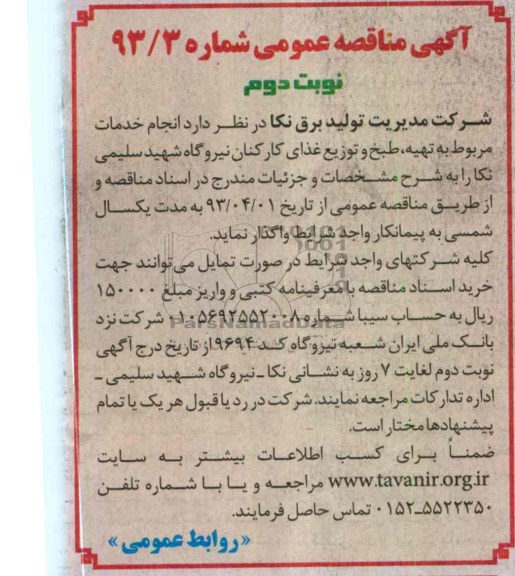 آگهی مناقصه عمومی شماره ۹۳/۳
نوبت دوم
شرکت مدیریت تولید برق نکا در نظر دارد انجام خدمات
مربوط به تهیه، طبخ و توزیع غذای کارکنان نیروگاه شهید سلیمی
نکا را به شرح مشخصات و جزئیات مندرج در اسناد مناقصه و
از طریق مناقصه عمومی از تاریخ ۹۳/۰۴/۰۱ به مدت یکسال
شمسی به پیمانکار واجد شرایط واگذار نماید.
کلیه شرکتهای واجد شرایط در صورت تمایل می‌توانند جهت
خرید اسناد مناقصه با معرفینامه کتبی و واریز مبلغ ۱۵۰۰۰۰
ریال به حساب سیبا شماره ۰۱۰۵۶۹۲۵۵۲۰۰۸ شرکت نزد
بانک ملی ایران شعبه نیروگاه کد ۹۶۹۴ از تاریخ درج آگهی
نوبت دوم لغایت ۷ روز به نشانی نکا ـ نیروگاه شهید سلیمی ـ
اداره تدارکات مراجعه نمایند. شرکت در رد یا قبول هر یک یا تمام
پیشنهادها مختار است.
ضمناً برای کسب اطلاعات بیشتر به سایت
www.tavanir.org.ir مراجعه و یا با شماره تلفن
۰۱۵۲-۵۵۲۲۳۵۰ تماس حاصل فرمایند.
«روابط عمومی»
ParsNamadData